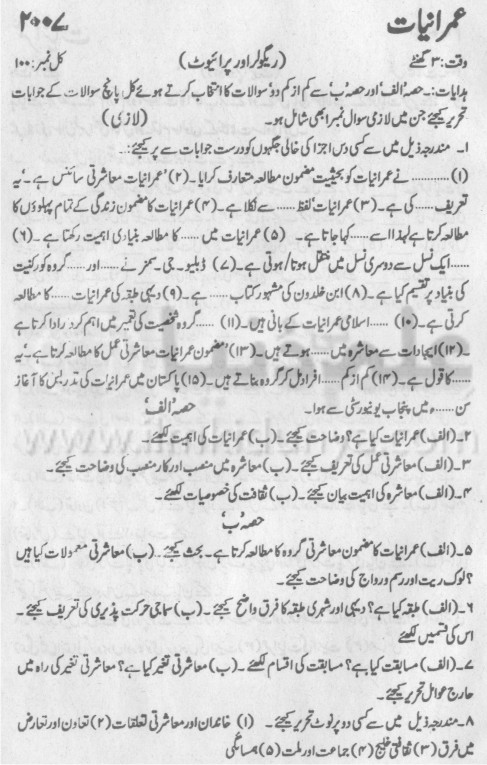 عمرانیات ۲۰۰۷
وقت: ۳ گھنٹے (ریگولر اور پرائیوٹ) کل نمبر: ۱۰۰
ہدایات:۔ حصہ 'الف' اور حصہ 'ب' سے کم از کم دو سوالات کا انتخاب کرتے ہوئے کل پانچ سوالات کے جوابات
تحریر کیجئے جن میں لازمی سوال نمبر ا بھی شامل ہو۔ (لازمی)
۱۔ مندرجہ ذیل میں سے کسی دس اجزا کی خالی جگہوں کو درست جوابات سے پر کیجئے:۔
(۱) ........... نے عمرانیات کو بحیثیت مضمون مطالعہ متعارف کرایا۔ (۲) 'عمرانیات معاشرتی سائنس ہے۔' یہ
تعریف ...... کی ہے۔ (۳) 'عمرانیات' لفظ ...... سے نکلا ہے۔ (۴) عمرانیات کا مضمون زندگی کے تمام پہلوؤں کا
مطالعہ کرتا ہے لہذا اسے ...... کہا جاتا ہے۔ (۵) عمرانیات میں ...... کا مطالعہ بنیادی اہمیت رکھتا ہے۔ (۶)
...... ایک نسل سے دوسری نسل میں منتقل ہوتا / ہوتی ہے۔ (۷) ڈبلیو۔ جی۔ سمنر نے ...... اور ...... گروہ کو رکنیت
کی بنیاد پر تقسیم کیا ہے۔ (۸) ابن خلدون کی مشہور کتاب ...... ہے۔ (۹) دیہی طبقہ کی عمرانیات ...... کا مطالعہ
کرتی ہے۔ (۱۰) ...... اسلامی عمرانیات کے بانی ہیں۔ (۱۱) ...... گروہ شخصیت کی تعمیر میں اہم کردار ادا کرتا ہے
۔ (۱۲) ایجادات سے معاشرہ میں ...... ہوتے ہیں۔ (۱۳) 'مضمون عمرانیات معاشرتی عمل کا مطالعہ کرتا ہے۔' یہ
...... کا قول ہے۔ (۱۴) کم از کم ...... افراد مل کر گروہ بناتے ہیں۔ (۱۵) پاکستان میں عمرانیات کی تدریس کا آغاز
سن ...... ء میں پنجاب یونیورسٹی سے ہوا۔
حصہ 'الف'
۲۔ (الف) عمرانیات کیا ہے؟ وضاحت کیجئے۔ (ب) عمرانیات کی اہمیت لکھئے۔
۳۔ (الف) معاشرتی عمل کی تعریف کیجئے۔ (ب) معاشرہ میں منصب اور کار منصب کی وضاحت کیجئے۔
۴۔ (الف) معاشرہ کی اہمیت بیان کیجئے۔ (ب) ثقافت کی خصوصیات لکھئے۔
حصہ 'ب'
۵۔ (الف) عمرانیات کا مضمون معاشرتی گروہ کا مطالعہ کرتا ہے۔ بحث کیجئے۔ (ب) معاشرتی معمولات کیا ہیں
؟ لوک ریت اور رسم و رواج کی وضاحت کیجئے۔
۶۔ (الف) طبقہ کیا ہے؟ دیہی اور شہری طبقہ کا فرق واضح کیجئے۔ (ب) سماجی حرکت پذیری کی تعریف کیجئے۔
اس کی قسمیں لکھئے
۷۔ (الف) مسابقت کیا ہے؟ مسابقت کی اقسام لکھئے۔ (ب) معاشرتی تغیر کیا ہے؟ معاشرتی تغیر کی راہ میں
حارج عوامل تحریر کیجئے۔
۸۔ مندرجہ ذیل میں سے کسی دو پر نوٹ تحریر کیجئے۔ (۱) خاندان اور معاشرتی تعلقات (۲) تعاون اور تعارض
میں فرق (۳) ثقافتی خلیج (۴) جماعت اور ملت (۵) ہمسائگی